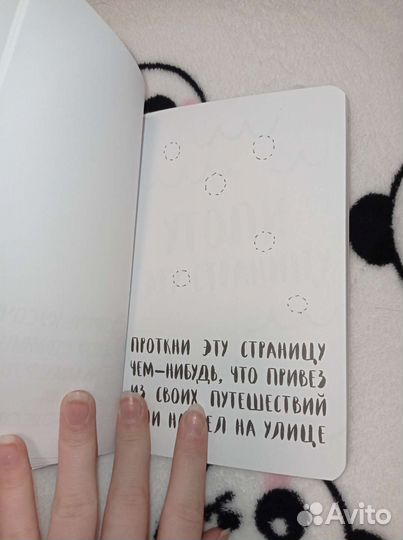 ПРОТКНИ ЭТУ СТРАНИЦУ
ЧЕМ-НИБУДЬ, ЧТО ПРИВЕЗ
ИЗ СВОИХ ПУТЕШЕСТВИЙ
НА УЛИЦЕ
Avito